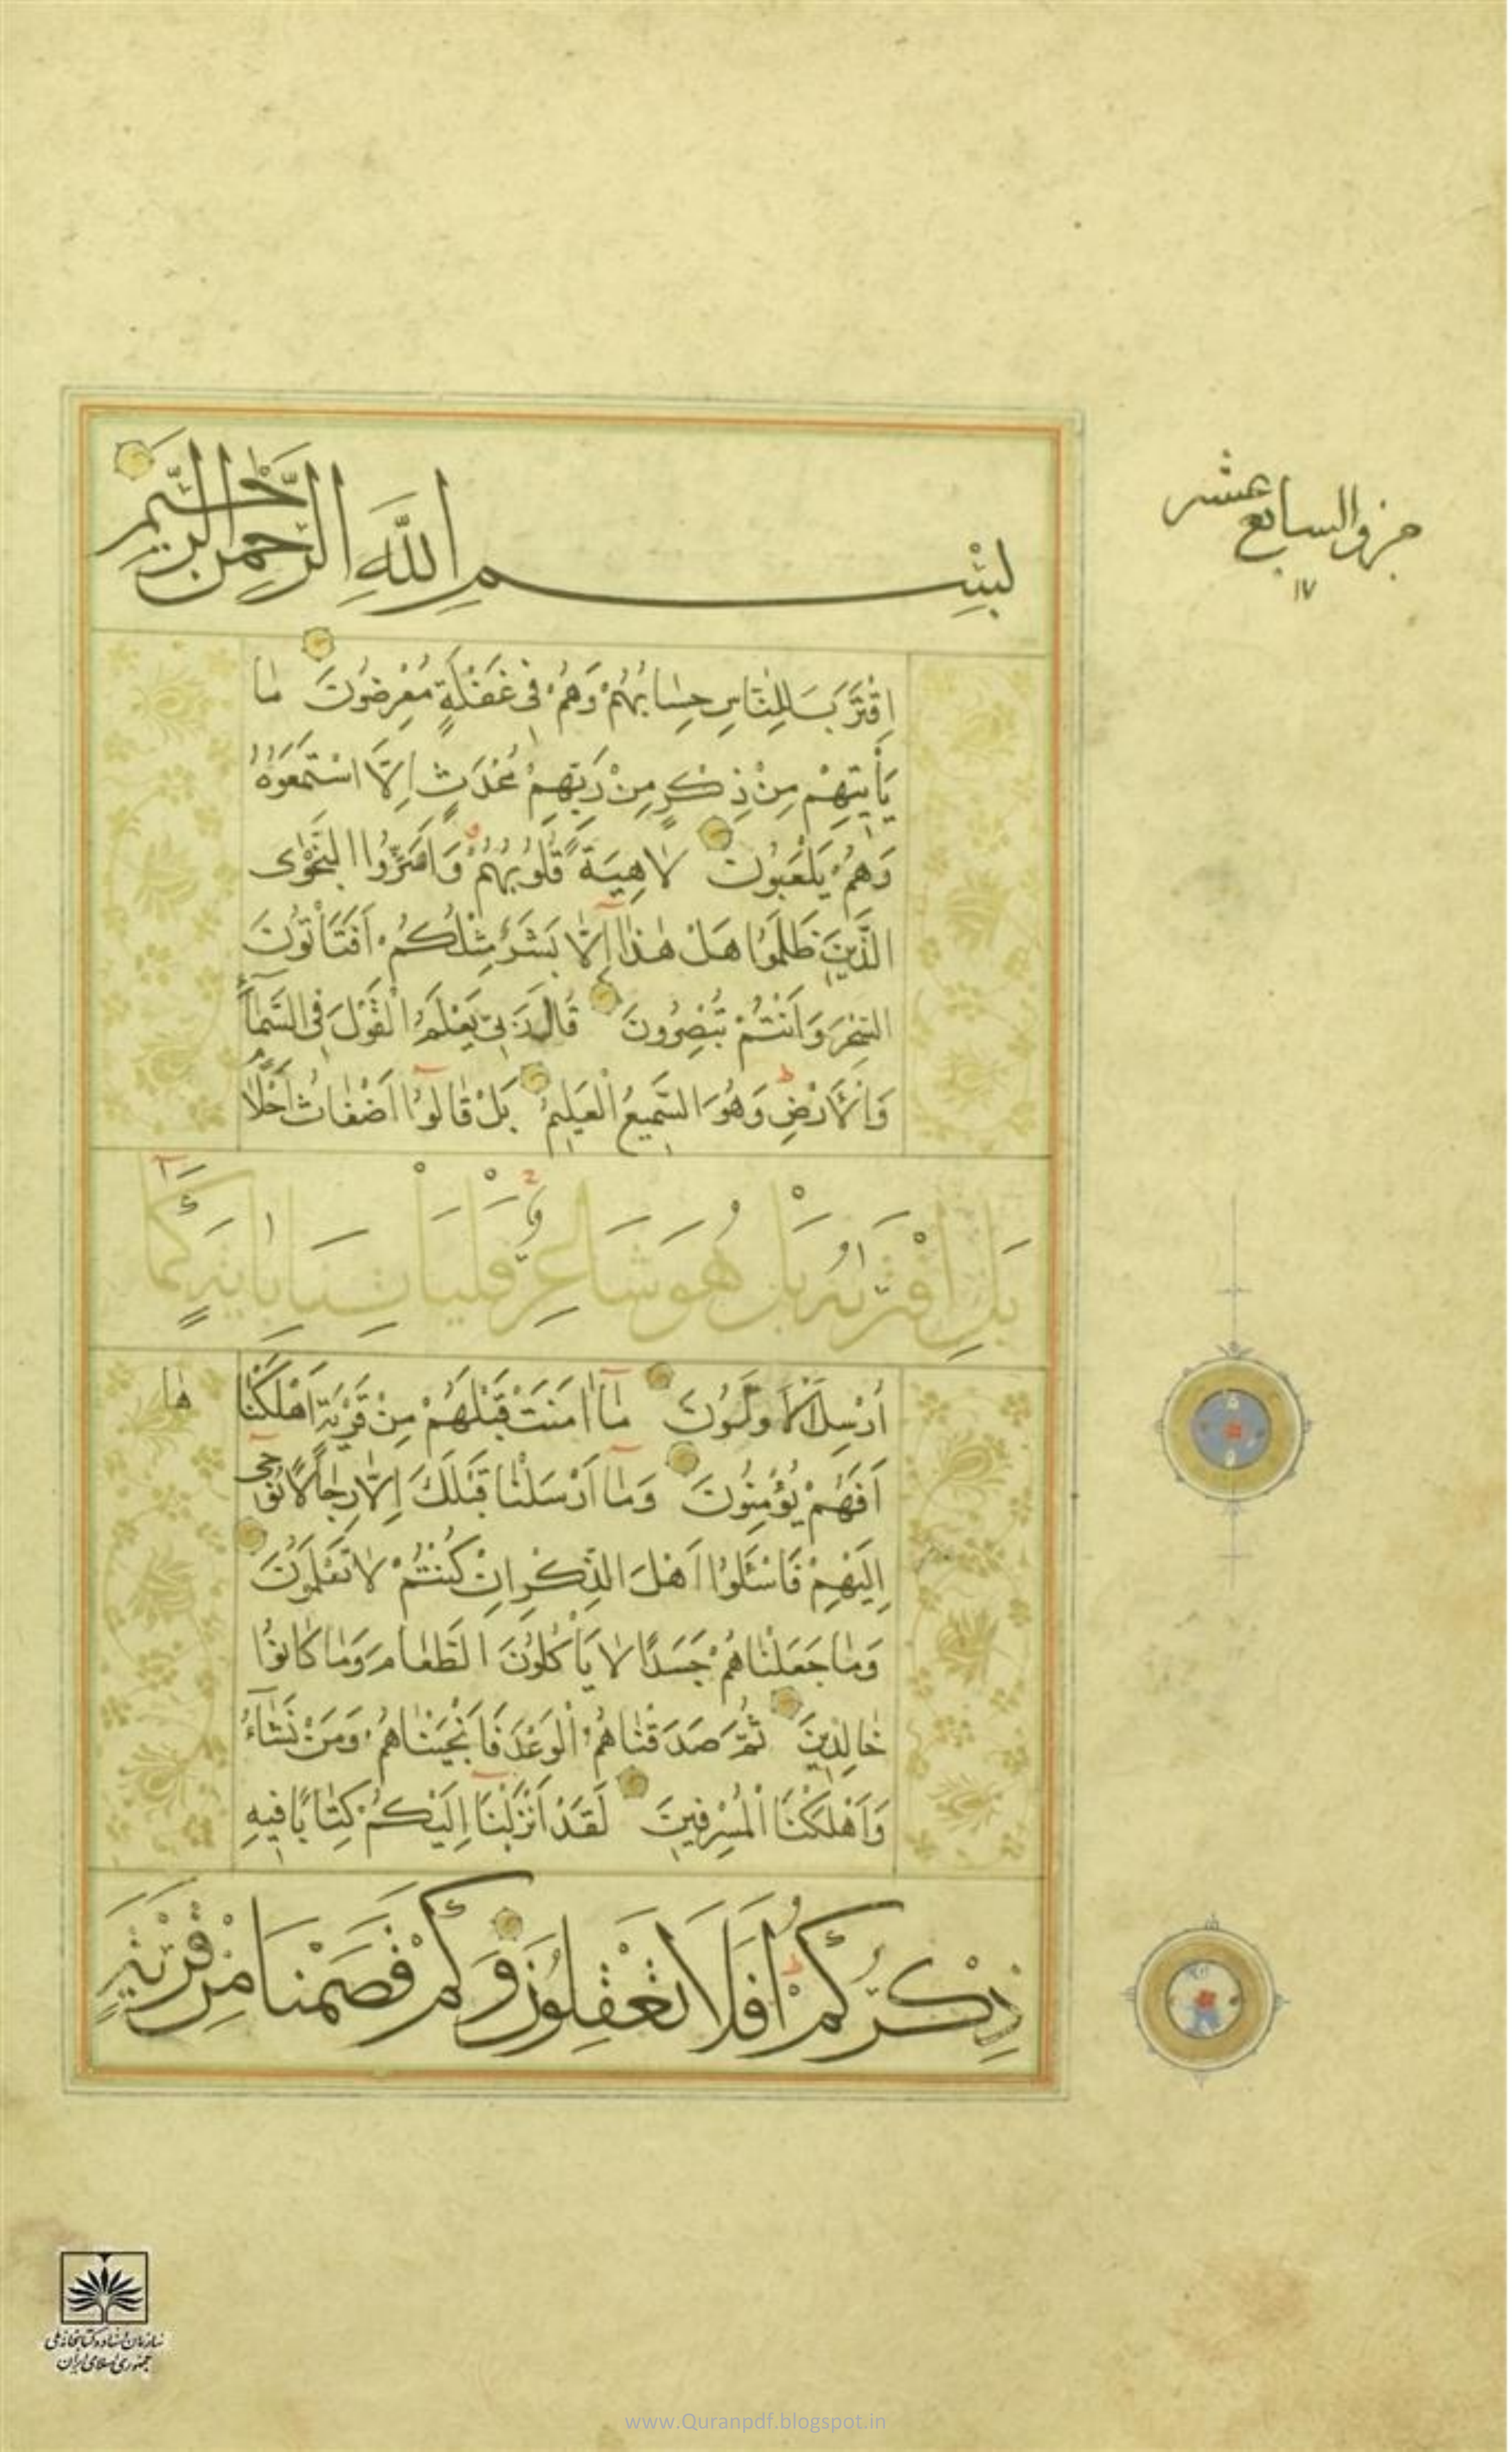 بِسْمِ اللَّهِ الرَّحْمٰنِ الرَّحِيمِ
جزو السابع عشر
١٧
اِقْتَرَبَ لِلنّٰاسِ حِسٰابُهُمْ وَهُمْ فِى غَفْلَةٍ مُعْرِضُونَ مٰا
يَأْتِيهِمْ مِنْ ذِكْرٍ مِنْ رَبِّهِمْ مُحْدَثٍ اِلَّا اسْتَمَعُوهُ
وَهُمْ يَلْعَبُونَ لٰاهِيَةً قُلُوبُهُمْ وَاَسَرُّوا النَّجْوٰى
الَّذِينَ ظَلَمُوا هَلْ هٰذٰا اِلّٰا بَشَرٌ مِثْلُكُمْ اَفَتَأْتُونَ
السِّحْرَ وَاَنْتُمْ تُبْصِرُونَ قٰالَ رَبِّى يَعْلَمُ الْقَوْلَ فِى السَّمٰآءِ
وَالْاَرْضِ وَهُوَ السَّمِيعُ الْعَلِيمُ بَلْ قٰالُوٓا اَضْغٰاثُ اَحْلٰامٍ
بَلِ افْتَرٰيهُ بَلْ هُوَ شَاعِرٌ فَلْيَأْتِنَا بِاٰيَةٍ كَمَآ
اُرْسِلَ الْاَوَّلُونَ مٰآ اٰمَنَتْ قَبْلَهُمْ مِنْ قَرْيَةٍ اَهْلَكْنٰا هٰا
اَفَهُمْ يُؤْمِنُونَ وَمٰآ اَرْسَلْنٰا قَبْلَكَ اِلّٰا رِجٰالًا نُوحِىٓ
اِلَيْهِمْ فَاسْئَلُوٓا اَهْلَ الذِّكْرِ اِنْ كُنْتُمْ لٰا تَعْلَمُونَ
وَمٰا جَعَلْنٰاهُمْ جَسَدًا لٰا يَأْكُلُونَ الطَّعٰامَ وَمٰا كٰانُوا
خٰالِدِينَ ثُمَّ صَدَقْنٰاهُمُ الْوَعْدَ فَاَنْجَيْنٰاهُمْ وَمَنْ نَشٰآءُ
وَاَهْلَكْنَا الْمُسْرِفِينَ لَقَدْ اَنْزَلْنَآ اِلَيْكُمْ كِتٰابًا فِيهِ
ذِكْرُكُمْ اَفَلَا تَعْقِلُونَ وَكَمْ قَصَمْنَا مِنْ قَرْيَةٍ
سازمان اسناد و کتابخانه ملی
جمهوری اسلامی ایران
www.Quranpdf.blogspot.in